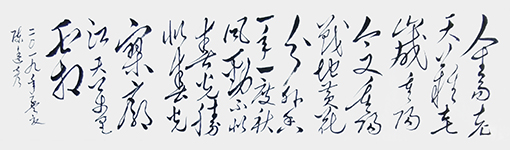 人生易老
天难老
岁岁重陽
今又重陽
戰地黄花
分外香
一年一度秋
風勁不似
春光勝
似春光
寥廓
江天万里
霜
二〇一九年